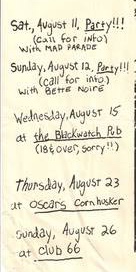 Sat., August 11, Party!!!
(call for info)
with MAD PARADE
Sunday, August 12, Party!!!
(call for info)
with BETTE NOIRE
Wednesday, August 15
at the Blackwatch Pub
(18 & over, sorry!!)
Thursday, August 23
at Oscars Cornhusker
Sunday, August 26
at Club 66